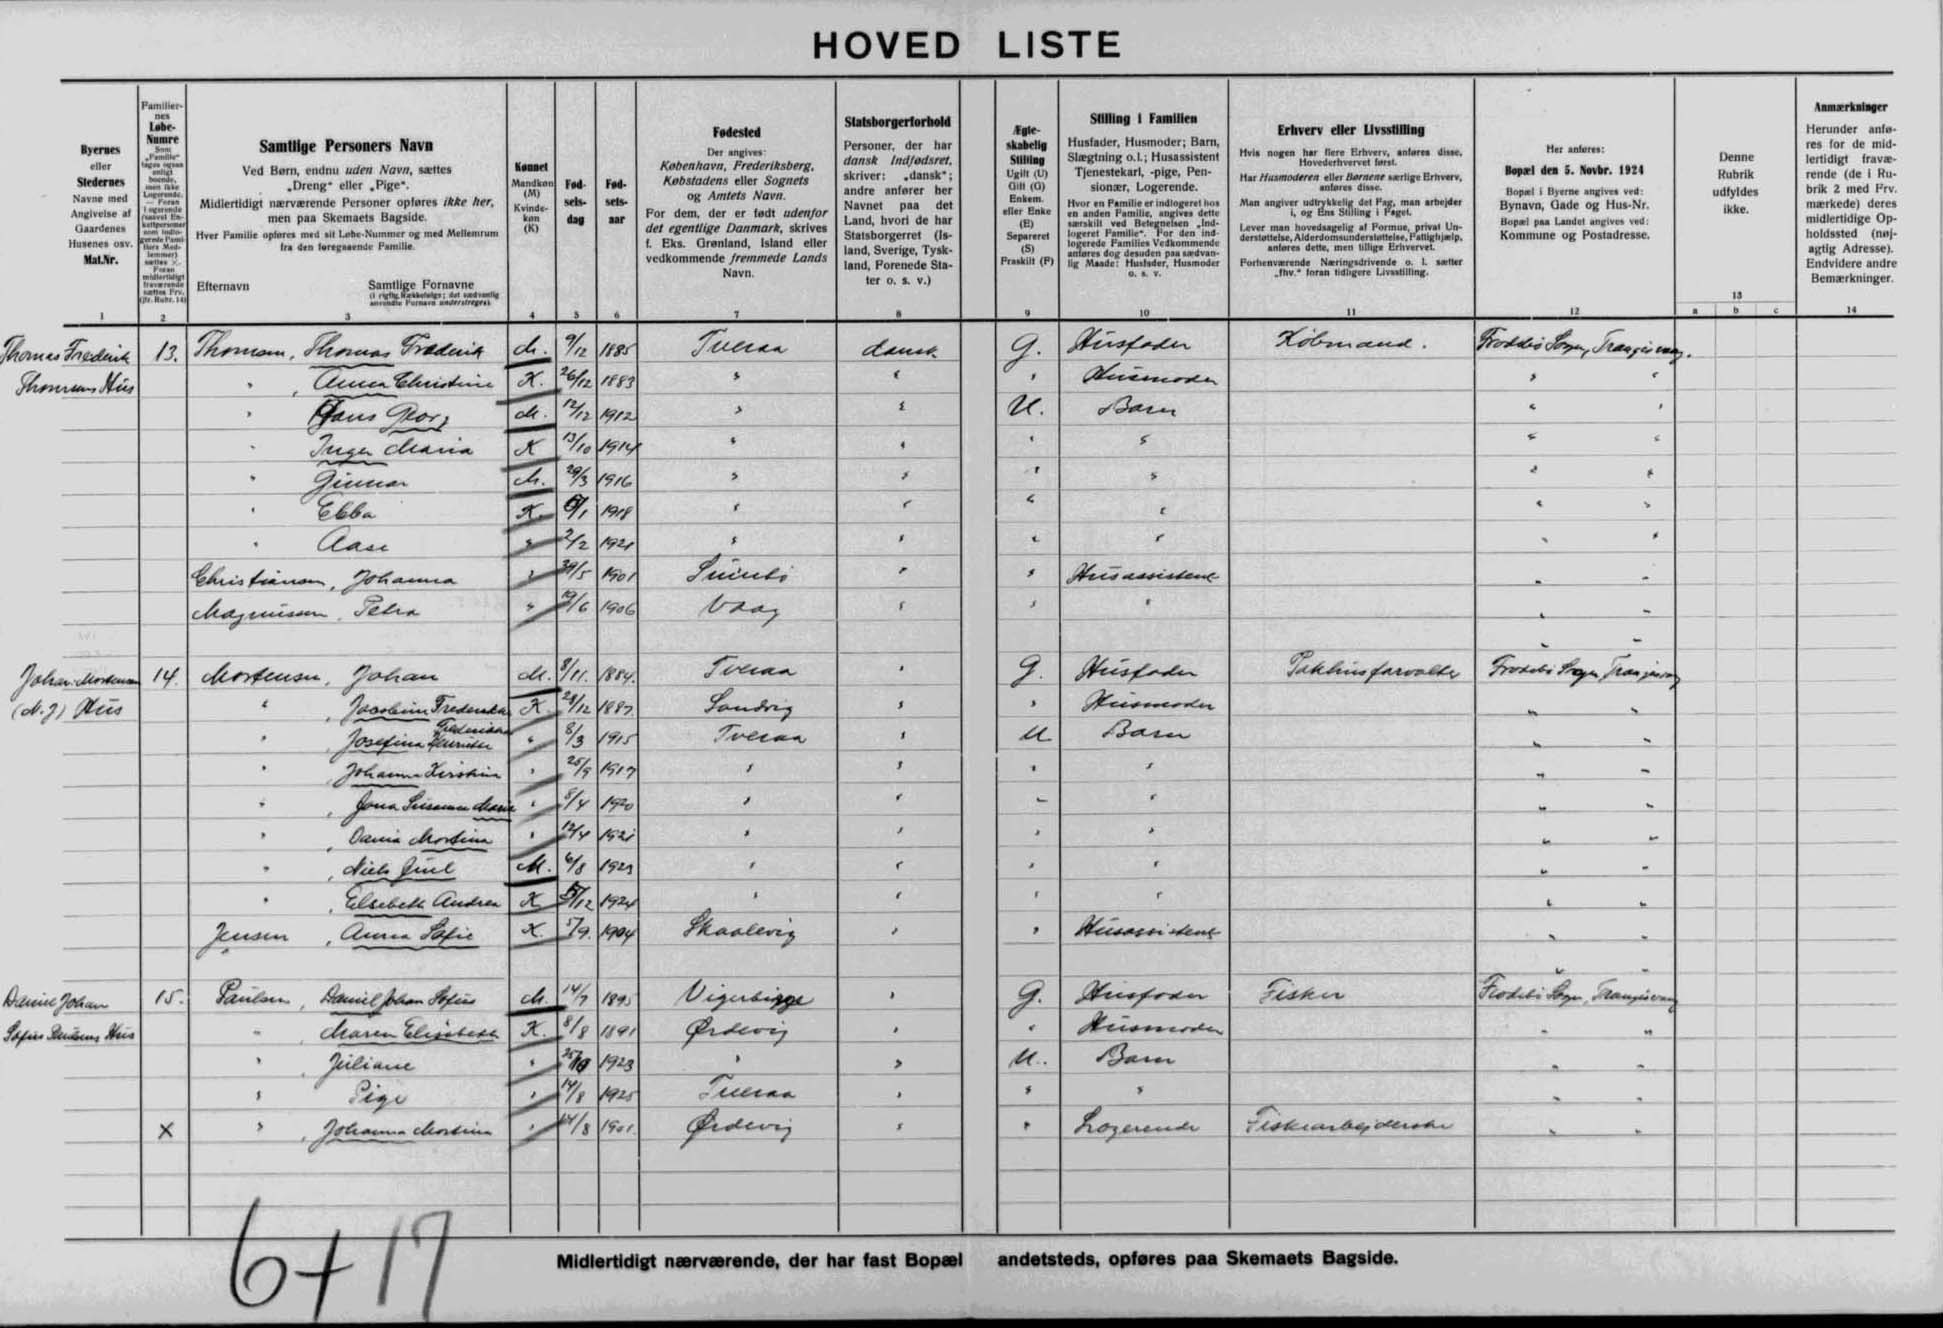 HOVED LISTE
Byernes
eller
Stedernes
Navne med
Angivelse af
Gaardenes
Husenes osv.
Mat.Nr.
1
Familier-
nes
Løbe-
Numre
2
Samtlige Personers Navn
Ved Børn, endnu uden Navn, sættes
„Dreng“ eller „Pige“.
Midlertidigt nærværende Personer opføres ikke her,
men paa Skemaets Bagside.
Hver Familie opføres med sit Løbe-Nummer og med Mellemrum
fra den foregaaende Familie.
Efternavn Samtlige Fornavne
(i rigtig Rækkefølge; det sædvanlig
anvendte Fornavn understreges).
3
Kønnet
Mandkøn
(M)
Kvinde-
køn
(K)
4
Fød-
sels-
dag
5
Fød-
sels-
aar
6
Fødested
Der angives:
København, Frederiksberg,
Købstadens eller Sognets
og Amtets Navn.
For dem, der er født udenfor
det egentlige Danmark, skrives
f. Eks. Grønland, Island eller
vedkommende fremmede Lands
Navn.
7
Statsborgerforhold
Personer, der har
dansk Indfødsret,
skriver: „dansk“;
andre anfører her
Navnet paa det
Land, hvori de har
Statsborgerret (Is-
land, Sverige, Tysk-
land, Forenede Sta-
ter o. s. v.)
8
Ægte-
skabelig
Stilling
Ugift (U)
Gift (G)
Enkem.
eller Enke
(E)
Separeret
(S)
Fraskilt (F)
9
Stilling i Familien
Husfader, Husmoder; Barn,
Slægtning o.l.; Husassistent
Tjenestekarl, -pige, Pen-
sionær, Logerende.
Hvor en Familie er indlogeret hos
en anden Familie, angives dette
særskilt ved Betegnelsen „Ind-
logeret Familie“. For den ind-
logerede Families Vedkommende
anføres dog desuden paa sædvan-
lig Maade: Husfader, Husmoder
o. s. v.
10
Erhverv eller Livsstilling
Hvis nogen har flere Erhverv, anføres disse,
Hovederhvervet først.
Har Husmoderen eller Børnene særlige Erhverv,
anføres disse.
Man angiver udtrykkelig det Fag, man arbejder
i, og Ens Stilling i Faget.
Lever man hovedsagelig af Formue, privat Un-
derstøttelse, Alderdomsunderstøttelse, Fattighjælp,
anføres dette, men tillige Erhvervet.
Forhenværende Næringsdrivende o. l. sætter
„fhv.“ foran tidligere Livsstilling.
11
Her anføres:
Bopæl den 5. Novbr. 1924
Bopæl i Byerne angives ved:
Bynavn, Gade og Hus-Nr.
Bopæl paa Landet angives ved:
Kommune og Postadresse.
12
Denne
Rubrik
udfyldes
ikke.
13
a b c
Anmærkninger
Herunder anfø-
res for de mid-
lertidigt fravæ-
rende (de i Ru-
brik 2 med Frv.
mærkede) deres
midlertidige Op-
holdssted (nøj-
agtig Adresse).
Endvidere andre
Bemærkninger.
14
Thomas Frederik 13. Thomsen, Thomas Frederik M. 9/12 1885 Tveraa dansk G. Husfader Købmand.
Thomsens Hus " Anna Christine K. 26/12 1883 " " " Husmoder " "
" Hans Georg M. 12/12 1912 " " U. Barn " "
" Inger Maria K 13/10 1914 " " " " " "
" Gunnar M. 29/3 1916 " " " " " "
" Ebba K. 1918 " " " " " "
" Aase " 2/2 1921 " " " " " "
Christiansen, Johanna " 1901 Sumbø " " Husassistent " "
Magnussen, Petra " 1906 Vaag " " " " "
Johan Mortensen 14. Mortensen, Johan M. 8/11. 1884. Tveraa " G. Husfader Pakhusforvalter
Hus " Jacobine Frederikka K. 28/12 1887. Sandvig " " Husmoder " "
" Josefina Henriette Frederikka " 8/3 1915 Tveraa " U Barn " "
" Johanna Kirstina " 25/9 1917 " " " " " "
" Jona Susanna Maria " 8/4 1920 " " " " " "
" Dania Mortina " 12/4 1921 " " " " " "
" Niels Juul M. 6/8 1923 " " " " " "
" Elsebeth Andrea K 1924 " " " " " "
Jensen, Anna Sofie K. 5/9. 1904 Skaalevig " " Husassistent " "
Daniel Johan 15. Paulsen, Daniel Johan Sofus M. 14/7 1895 Vigerbigge " G. Husfader Fisker
Sofus Paulsens Hus " Maren Elisabeth K. 8/8 1891 Ørdevig " " Husmoder " "
" Juliane " 1923 " " U. Barn " "
" Pige " 14/8 1925 Tveraa " " " " "
X " Johanna Mortina " 14/8 1901. Ørdevig " " Logerende Fiskearbejderske " "
6+17
Midlertidigt nærværende, der har fast Bopæl andetsteds, opføres paa Skemaets Bagside.